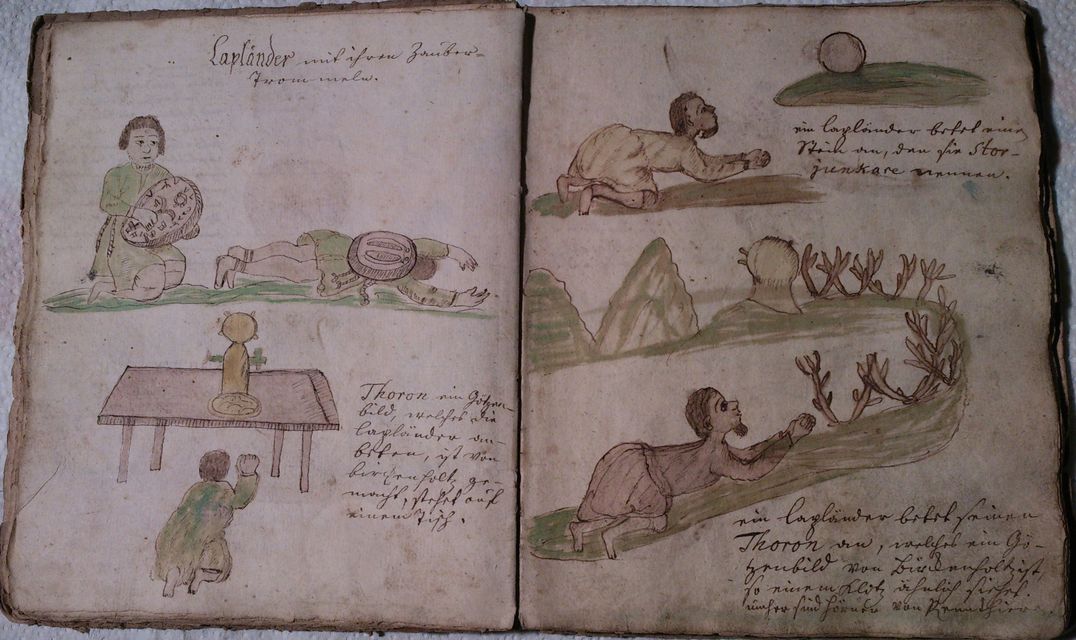 Lapländer mit ihren Zauber-
Trommeln.
Thoron ein Götzen-
bild, welches die
Lapländer an-
beten, ist von
birckenholtz ge-
macht, stehet auf
einem Tisch.
ein Lapländer betet einen
Stein an, den sie Stor-
junkare nennen.
ein Lapländer betet seinen
Thoron an, welches ein Gö-
tzenbild von Birckenholtz ist,
so einem Klotz ähnlich siehet.
umher sind Hörner von